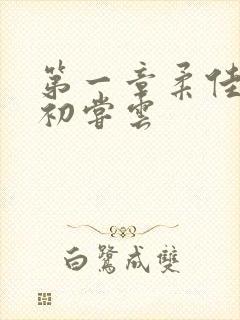 第一章柔佳
初尝云
白鹭成双